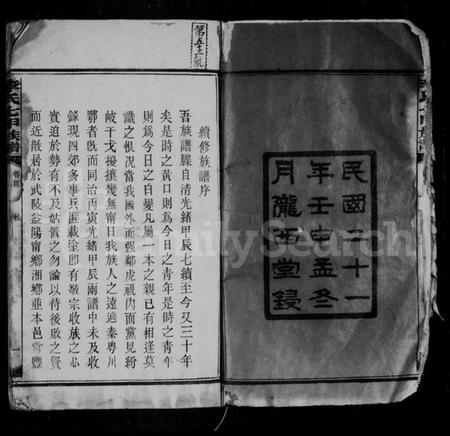 民國二十一
年壬申孟冬
月隴西堂鐫
第五十三號
續修族譜序
吾族譜牒自清光緒甲辰七續至今又三十年
矣是時之黃口則為今日之青年是時之青年
則為今日之白髮凡屬一本之親已有相逢莫
識之恨況當我國外而強鄰虎視內而黨見紛
岐干戈擾攘幾無甯日我族人之遠適秦粵川
鄂者既而同治丙寅光緒甲辰兩譜中未及收
錄現四鄰多事兵匪載途即有敬宗收族之心
實迫於勢有不及姑置之勿論以待後啟之賢
而近散居於武陵益陽甯鄉湘鄉並本邑當豐
氏七百族譜
卷首
一
FamilySearch